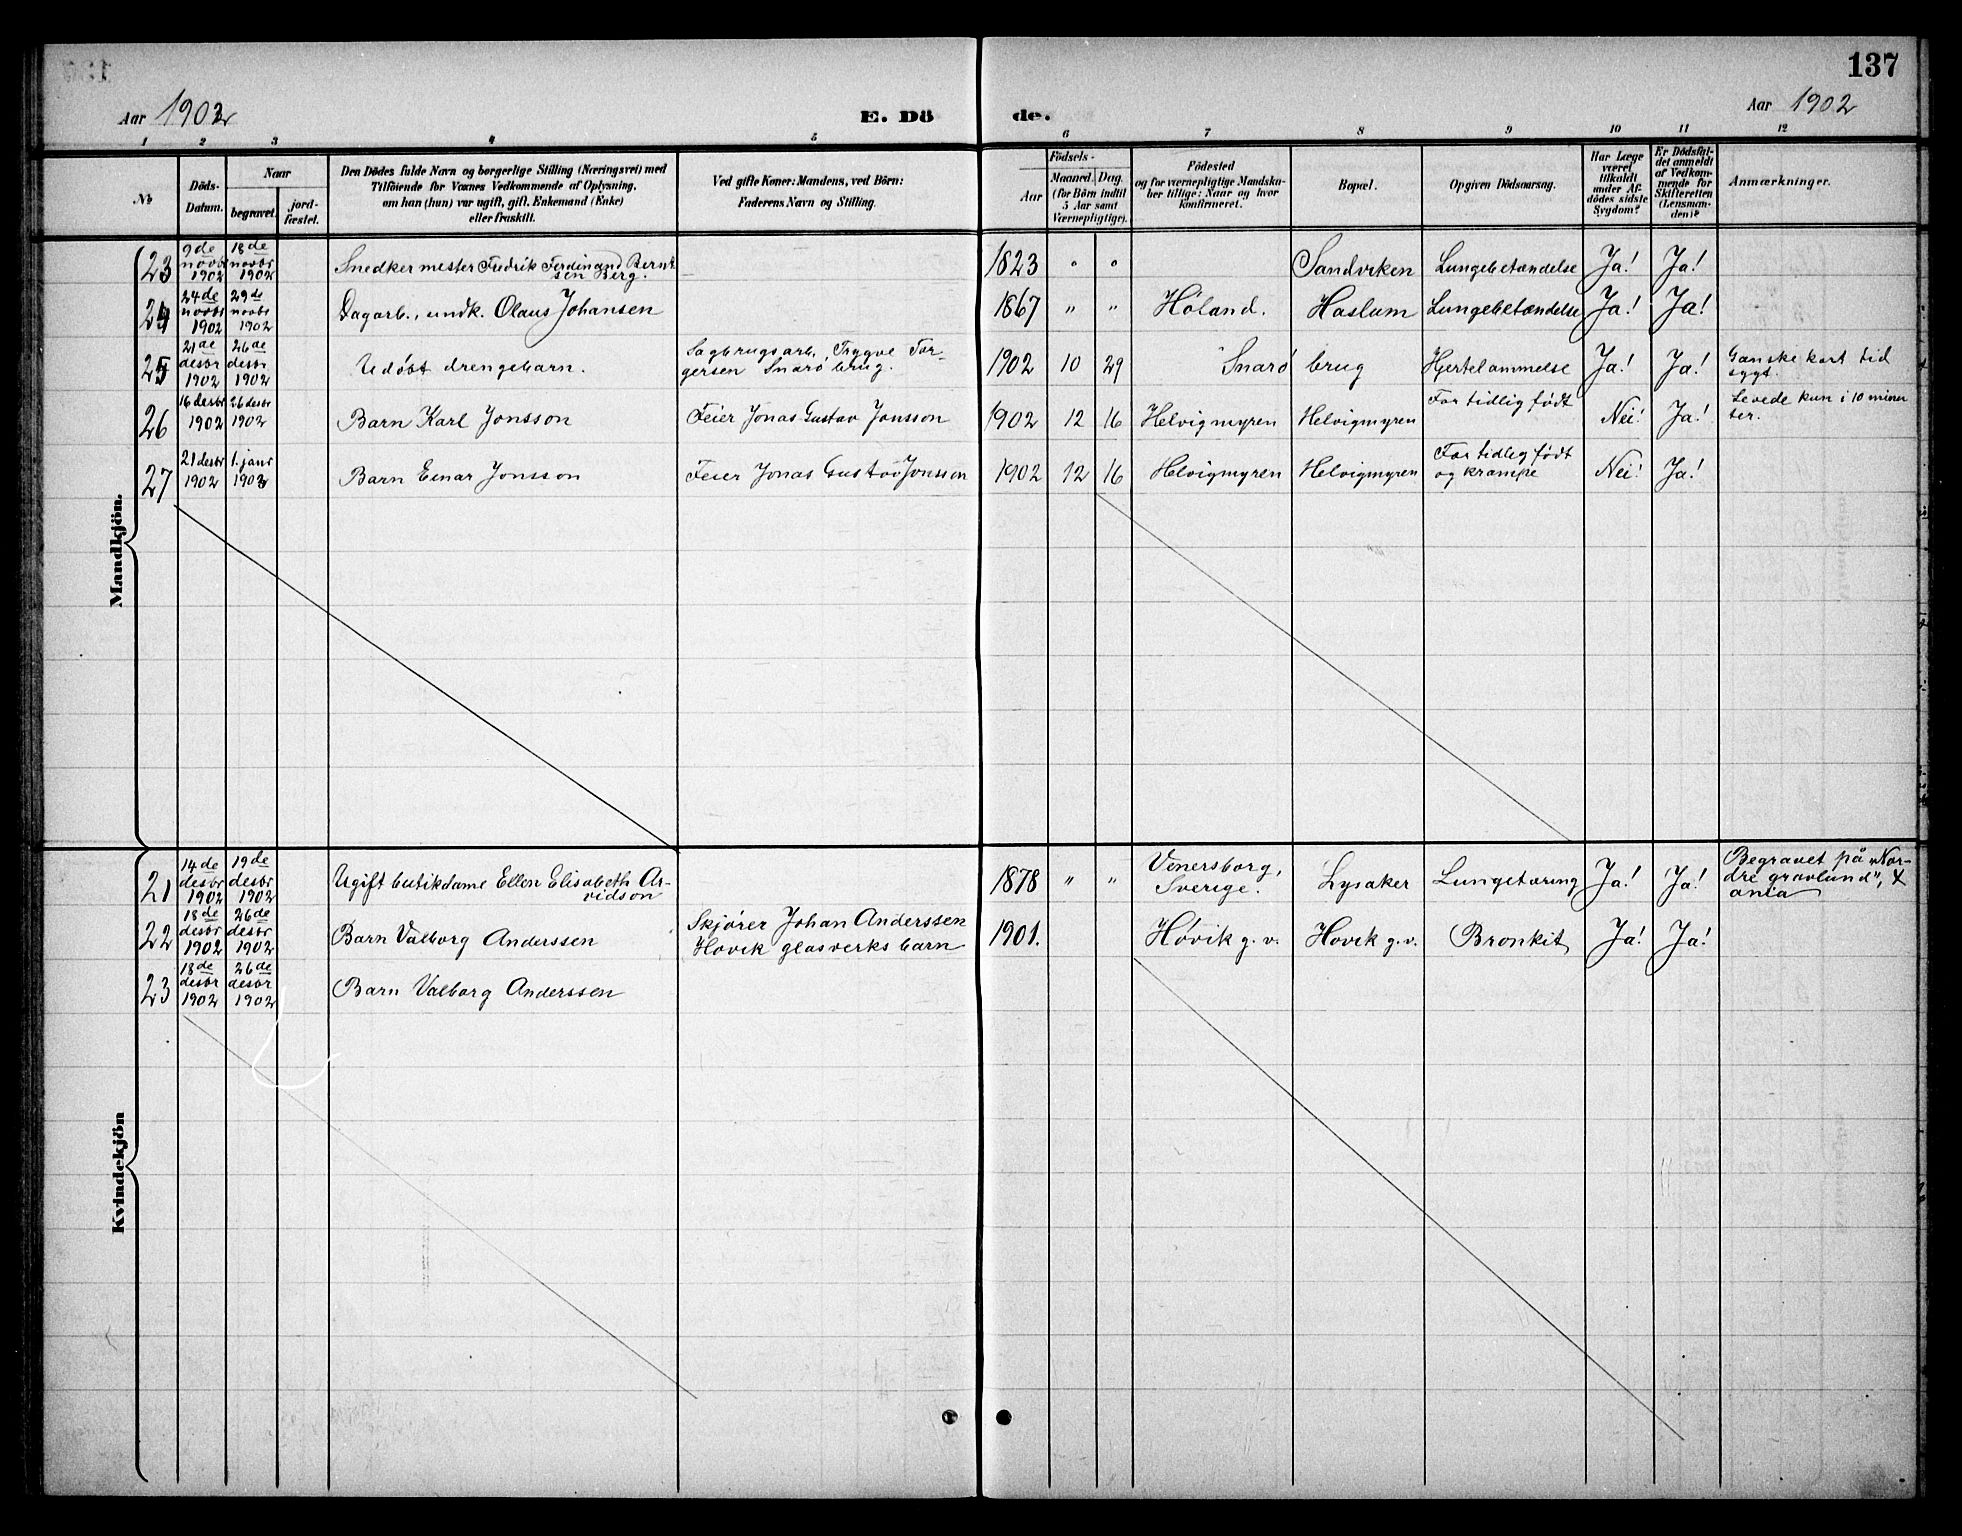 137
Aar 1902
E. Dö
de.
Aar 1902
1 2 3 4 5 6 7 8 9 10 11 12
№
Döds-
Datum.
Naar
begravet.
jord-
fæstet.
Den Dödes fulde Navn og borgerlige Stilling (Næringsvei) med
Tilföiende for Voxnes Vedkommende af Oplysning,
om han (hun) var ugift, gift, Enkemand (Enke)
eller fraskilt.
Ved gifte Koner: Mandens, ved Börn:
Faderens Navn og Stilling.
Födsels-
Aar
Maaned. Dag.
(for Börn indtil
5 Aar samt
Værnepligtige).
Födested
og for værnepligtige Mandska-
ber tillige: Naar og hvor
konfirmeret.
Bopæl.
Opgiven Dödsaarsag.
Har Læge
været
tilkaldt
under Af-
dödes sidste
Sygdom?
Er Dödsfal-
det anmeldt
af Vedkom-
mende for
Skifteretten
(Lensman-
den)?
Anmærkninger.
Mandkjön.
23 9de novbr 1902 18de novbr 1902 Snedkermester Fredrik Ferdinand Bernt
sen Berg. 1823 " " Sandviken Lungebetændelse Ja! Ja!
24 24de novbr 1902 29de novbr 1902 Dagarb., undk. Olaus Johansen 1867 " " Høland. Haslum Lungebetændelse Ja! Ja!
25 21de desbr 1902 26de desbr 1902 Udøbt drengebarn. Sagbrugsarb. Trygve Tor-
gersen Snarø brug. 1902 10 29 Snarø brug Hjertelammelse Ja! Ja! Ganske kort tid
sygt.
26 16 desbr 1902 26 desbr 1902 Barn Karl Jonsson Feier Jonas Gustav Jonsson 1902 12 16 Helvigmyren Helvigmyren For tidlig født Nei! Ja! Levede kun i 10 minu
ter.
27 21 desbr 1902 1. janr 1903 Barn Einar Jonsson Feier Jonas Gustav Jonsson 1902 12 16 Helvigmyren Helvigmyren For tidlig født
og krampe Nei! Ja!
Kvindekjön
21 14de desbr 1902 19de desbr 1902 Ugift butikdame Ellen Elisabeth Ar-
vidson 1878 " " Venersborg,
Sverige. Lysaker Lungetæring Ja! Ja! Begravet på "Nor-
dre gravlund", X
ania
22 18de desbr 1902 26de desbr 1902 Barn Valborg Anderssen Skjører Johan Anderssen
Høvik glasverks barn 1901. Høvik g. v. Høvik g. v. Bronkit Ja! Ja!
23 18de desbr 1902 26de desbr 1902 Barn Valborg Anderssen